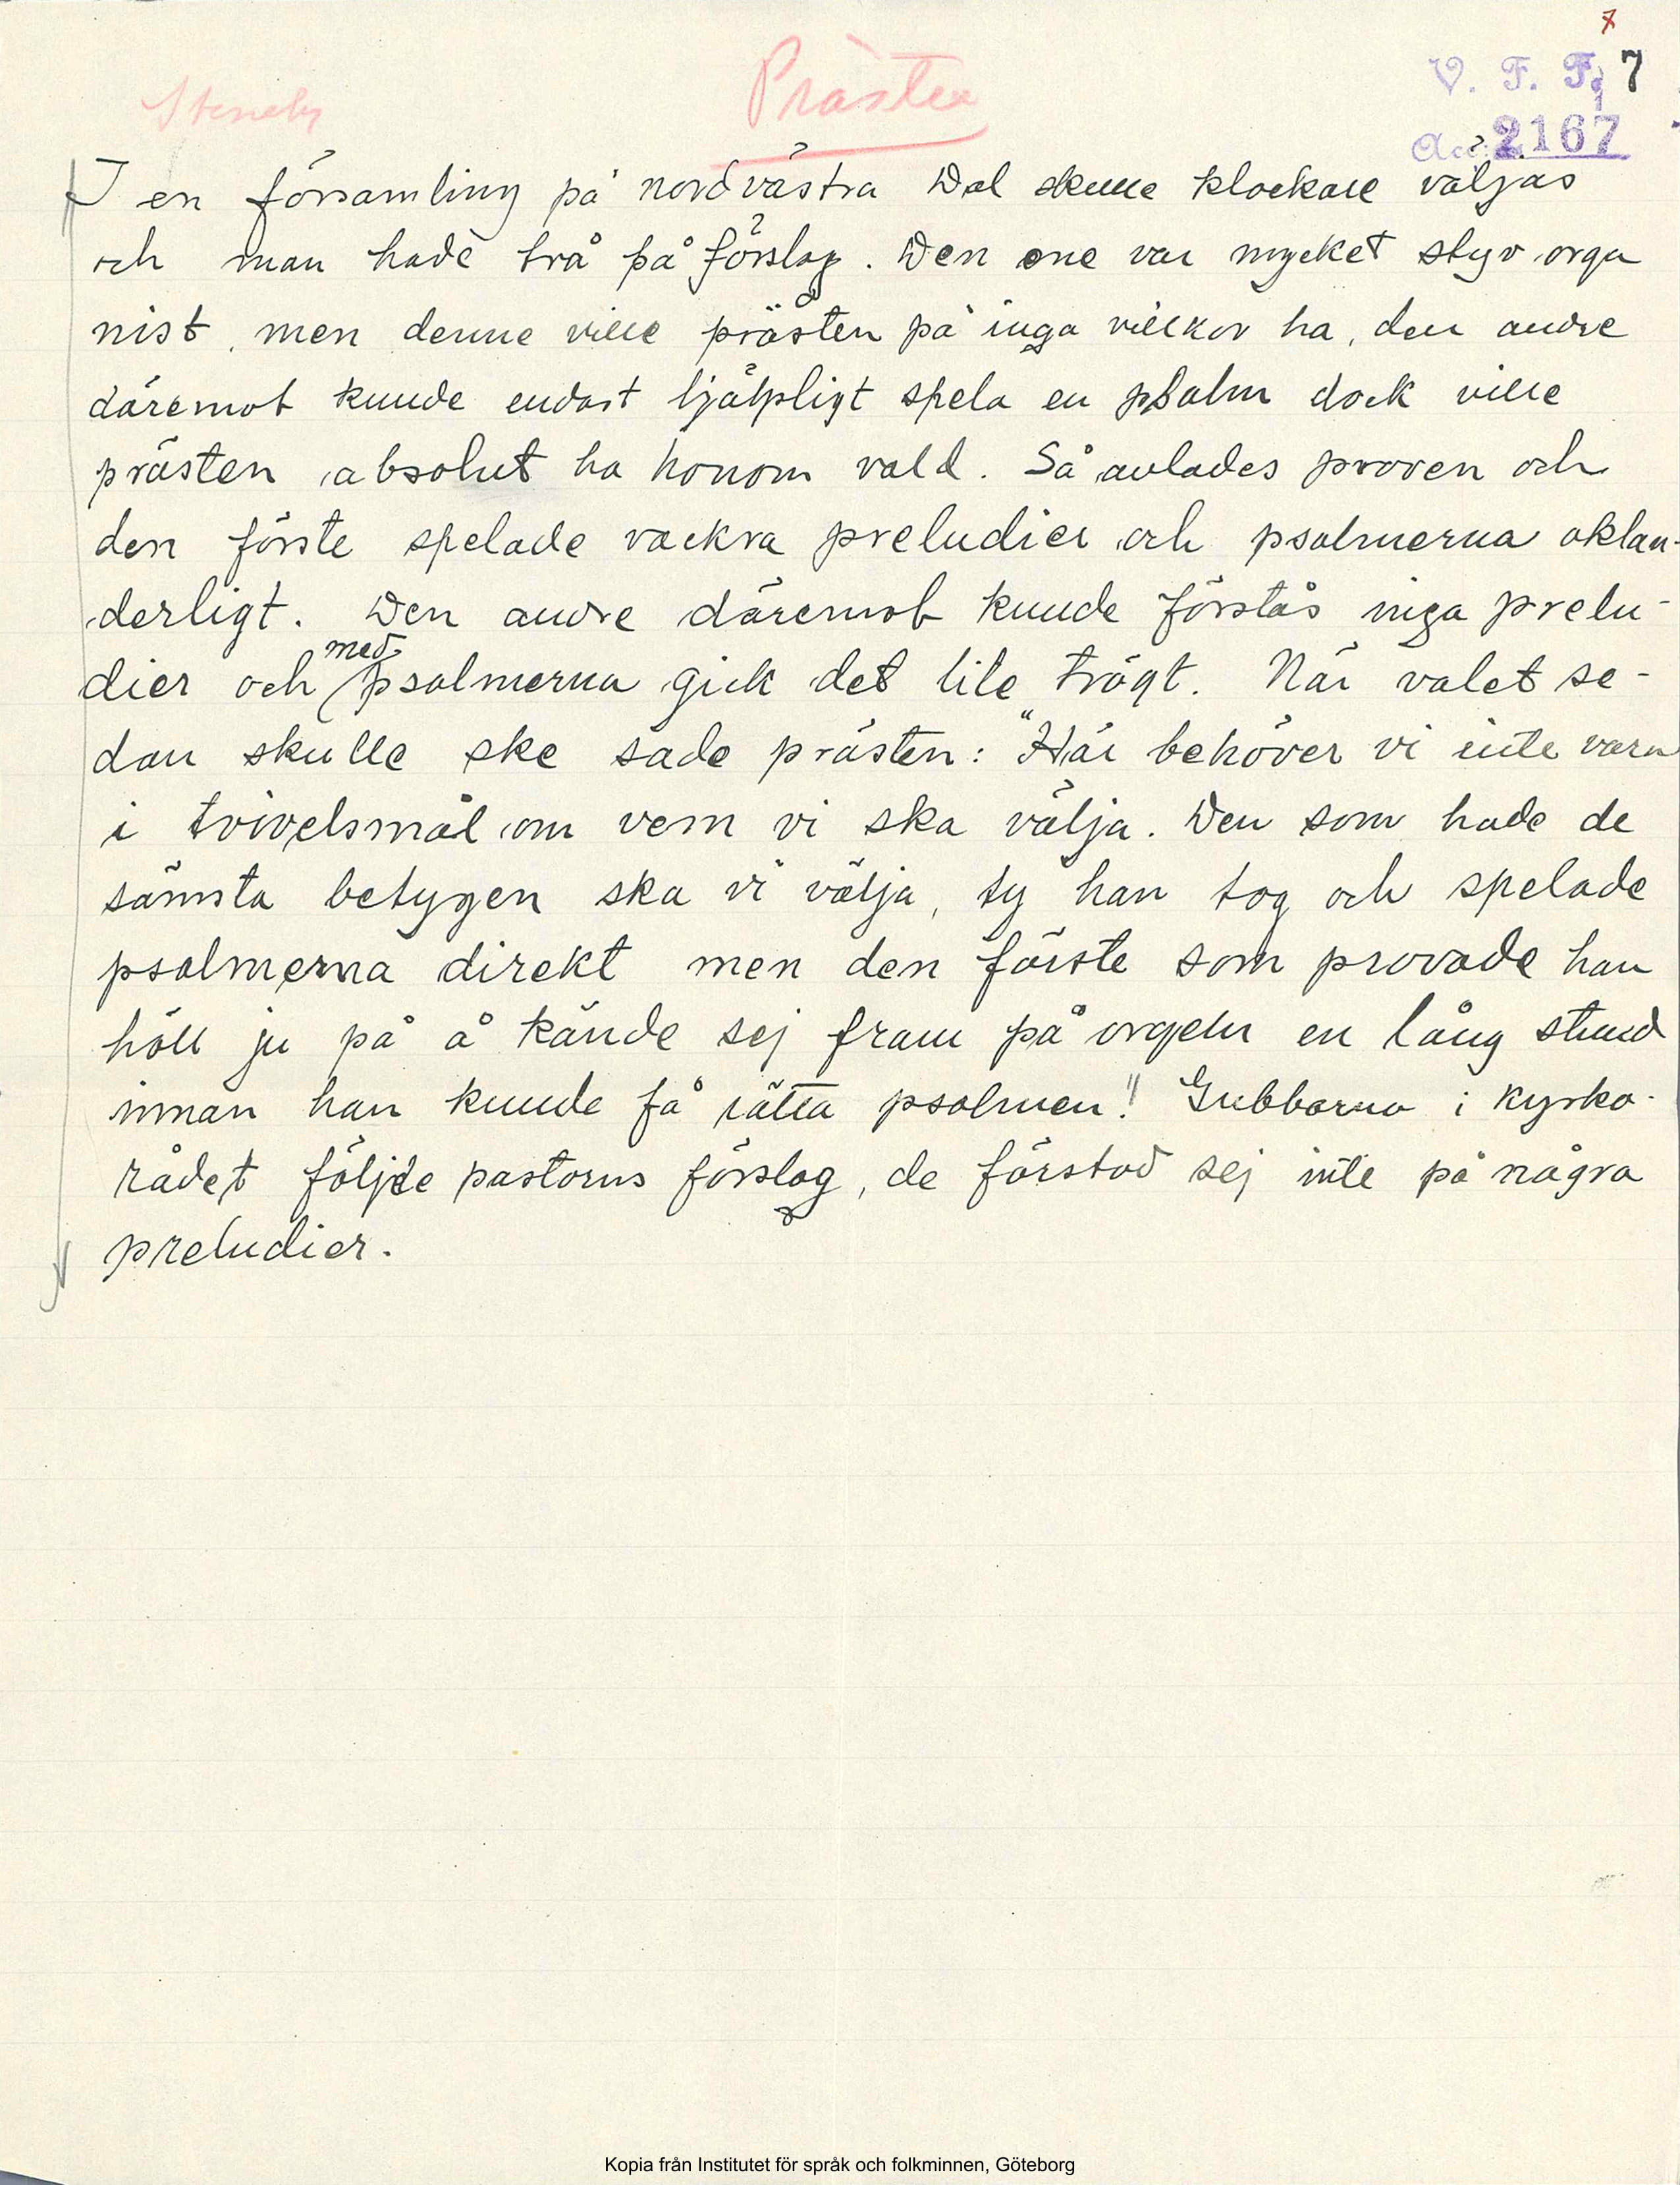 7
V. F. F. 7
Steneby
Prästen
Acc. 2167
I en församling på nordvästra Dal skulle klockare väljas
och man hade två på förslag. Den ene var mycket styv orga
nist, men denne ville prästen på inga villkor ha, den andre
däremot kunde endast hjälpligt spela en psalm dock ville
prästen absolut ha honom vald. Så avlades proven och
den förste spelade vackra preludier och psalmerna oklan-
derligt. Den andre däremot kunde förstås inga prelu-
dier och med psalmerna gick det lite trögt. När valet se-
dan skulle ske sade prästen: "Här behöver vi inte vara
i tvivelsmål om vem vi ska välja. Den som hade de
sämsta betygen ska vi välja, ty han tog och spelade
psalmerna direkt men den förste som provade han
höll ju på å kände sej fram på orgeln en lång stund
innan han kunde få rätta psalmen!" Gubbarna i kyrko-
rådet följde pastorns förslag, de förstod sej inte på några
preludier.
Kopia från Institutet för språk och folkminnen, Göteborg